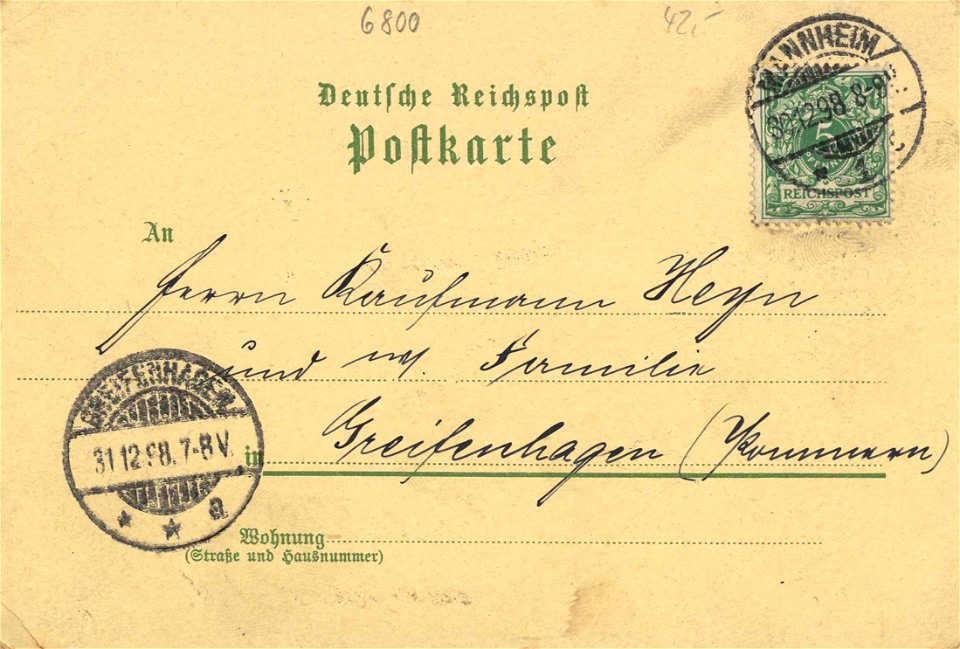 6800
42,-
Deutsche Reichspost
Postkarte
MANNHEIM
12 98 8-9
1
5
REICHSPOST
An
Herrn Kaufmann Heyn
und w. Familie
in Greifenhagen (Pommern)
GREIFENHAGEN
31 12 98. 7-8 V.
* * a
Wohnung
(Straße und Hausnummer)